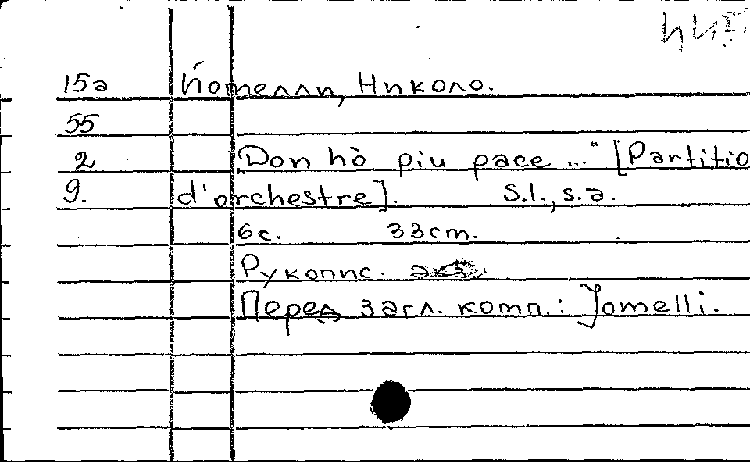 15а Йомелли, Николо.
55
2 „Don hò piu pace..." [Partitio
9. d'orchestre]. S.l., s.a.
6с. 33cm.
Рукопис.
Перед загл. комп.: Jomelli.